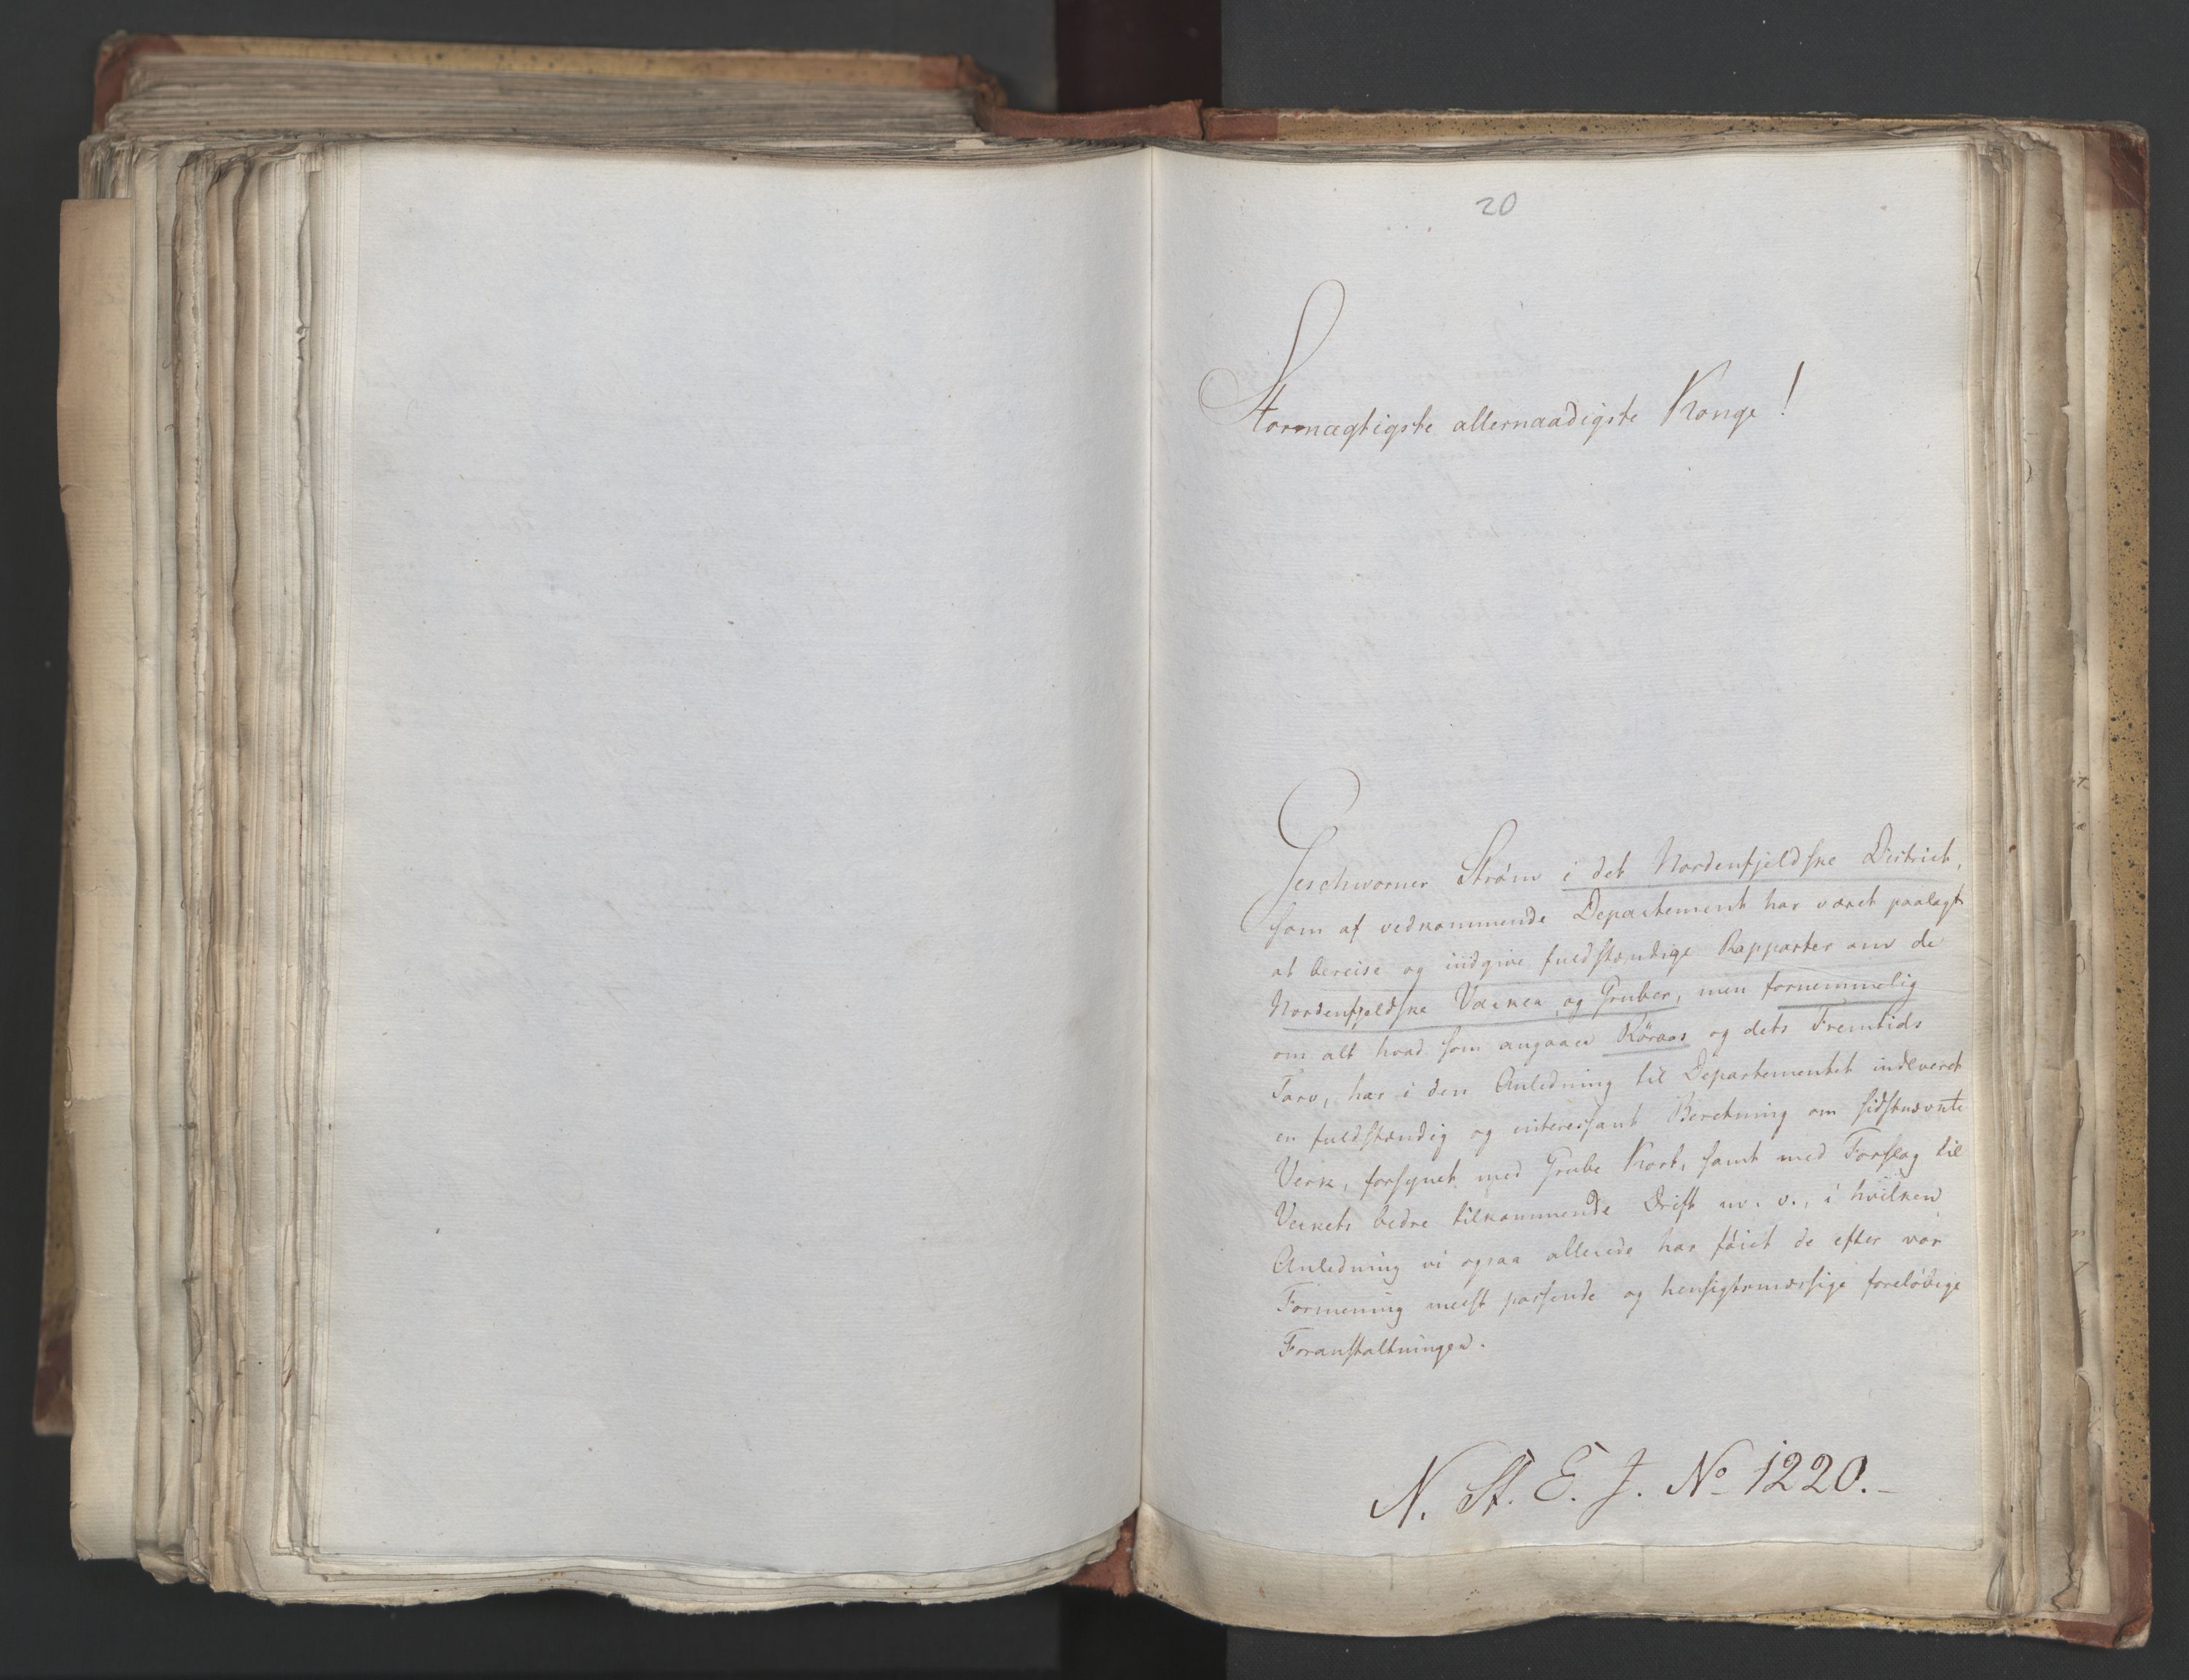 20
Stormægtigste allernaadigste Konge!
Geschworner Strøm i det Nordenfjeldske District,
som af vedkommende Departement har været paalagt
at bereise og indgive fuldstændige Rapporter om de
Nordenfjeldske Værker og Gruber, men fornemmelig
om alt hvad som angaaer Röraas og dets Fremtids
Tarv, har i den Anledning til Departementet indleveret
en fuldstændig og interessant Beretning om sidstnævnte
Verk, forsynet med Grube Kort, samt med Forslag til
Verkets bedre tilkommende Drift m. v., i hvilken
Anledning vi ogsaa allerede har föiet de efter vor
Formening meest passende og hensigtsmæssige forelöbige
Foranstaltninger.
N. St. E. J. No 1220.-